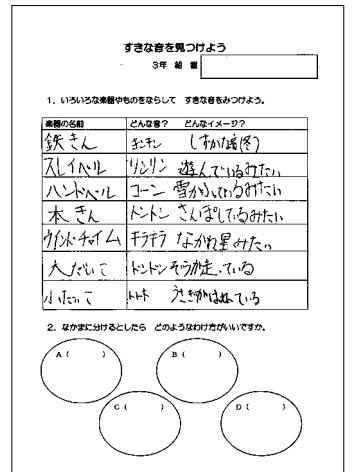 すきな音を見つけよう
3年 組 番
1．いろいろな楽器やものをならして すきな音をみつけよう。
楽器の名前 どんな音？ どんなイメージ？
鉄きん キンキン しずかな(冬)
スレイベル リンリン 遊んでいるみたい
ハンドベル コーン 雪がふっているみたい
木きん トントン さんぽしているみたい
ウインドチャイム キラキラ ながれ星みたい
大だいこ ドンドン ぞうが走っている
小だいこ トトト うさぎがはねている
2．なかまに分けるとしたら どのようなわけ方がいいですか。
A（ ） B（ ）
C（ ） D（ ）